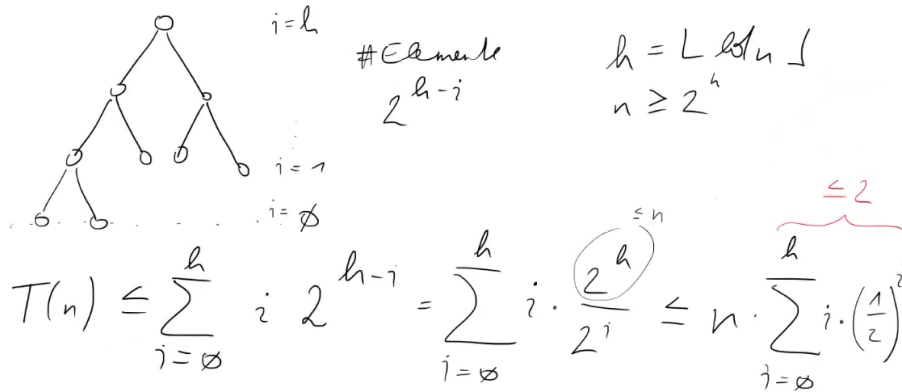 i = h
# Elemente
2^{h-i}
h = ⌊ ld n ⌋
n ≥ 2^h
i = 1
i = ∅
≤ n
≤ 2
T(n) ≤ ∑_{i=∅}^{h} i 2^{h-i} = ∑_{i=∅}^{h} i · 2^h / 2^i ≤ n · ∑_{i=∅}^{h} i · (1/2)^i